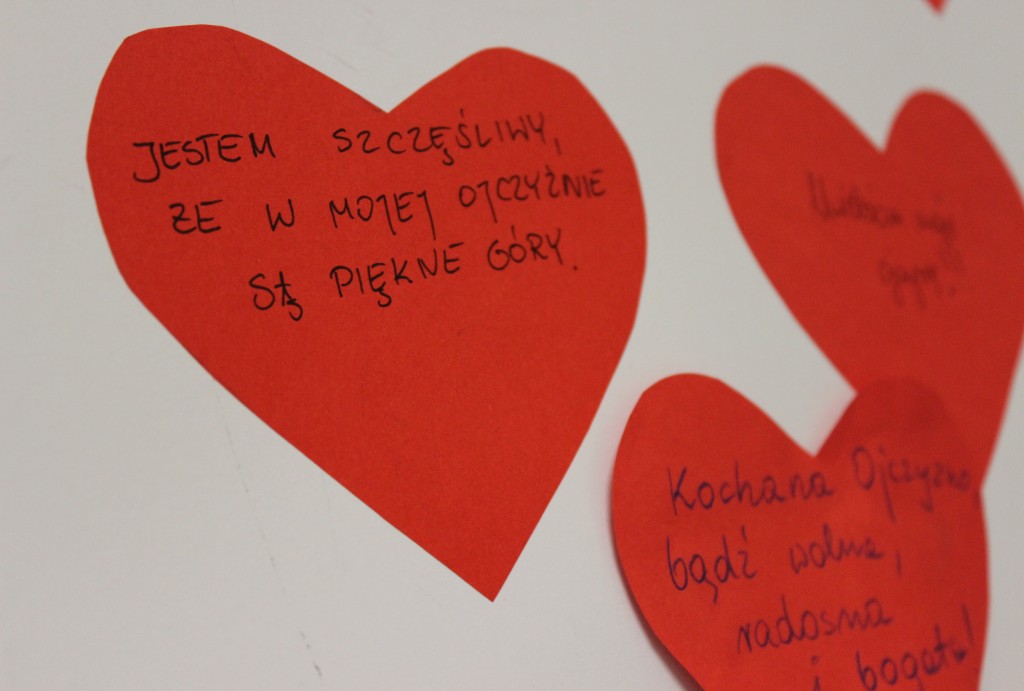 JESTEM SZCZĘŚLIWY,
ŻE W MOJEJ OJCZYŹNIE
SĄ PIĘKNE GÓRY.
Kochana Ojczyzno
bądź wolna,
radosna
i bogata!